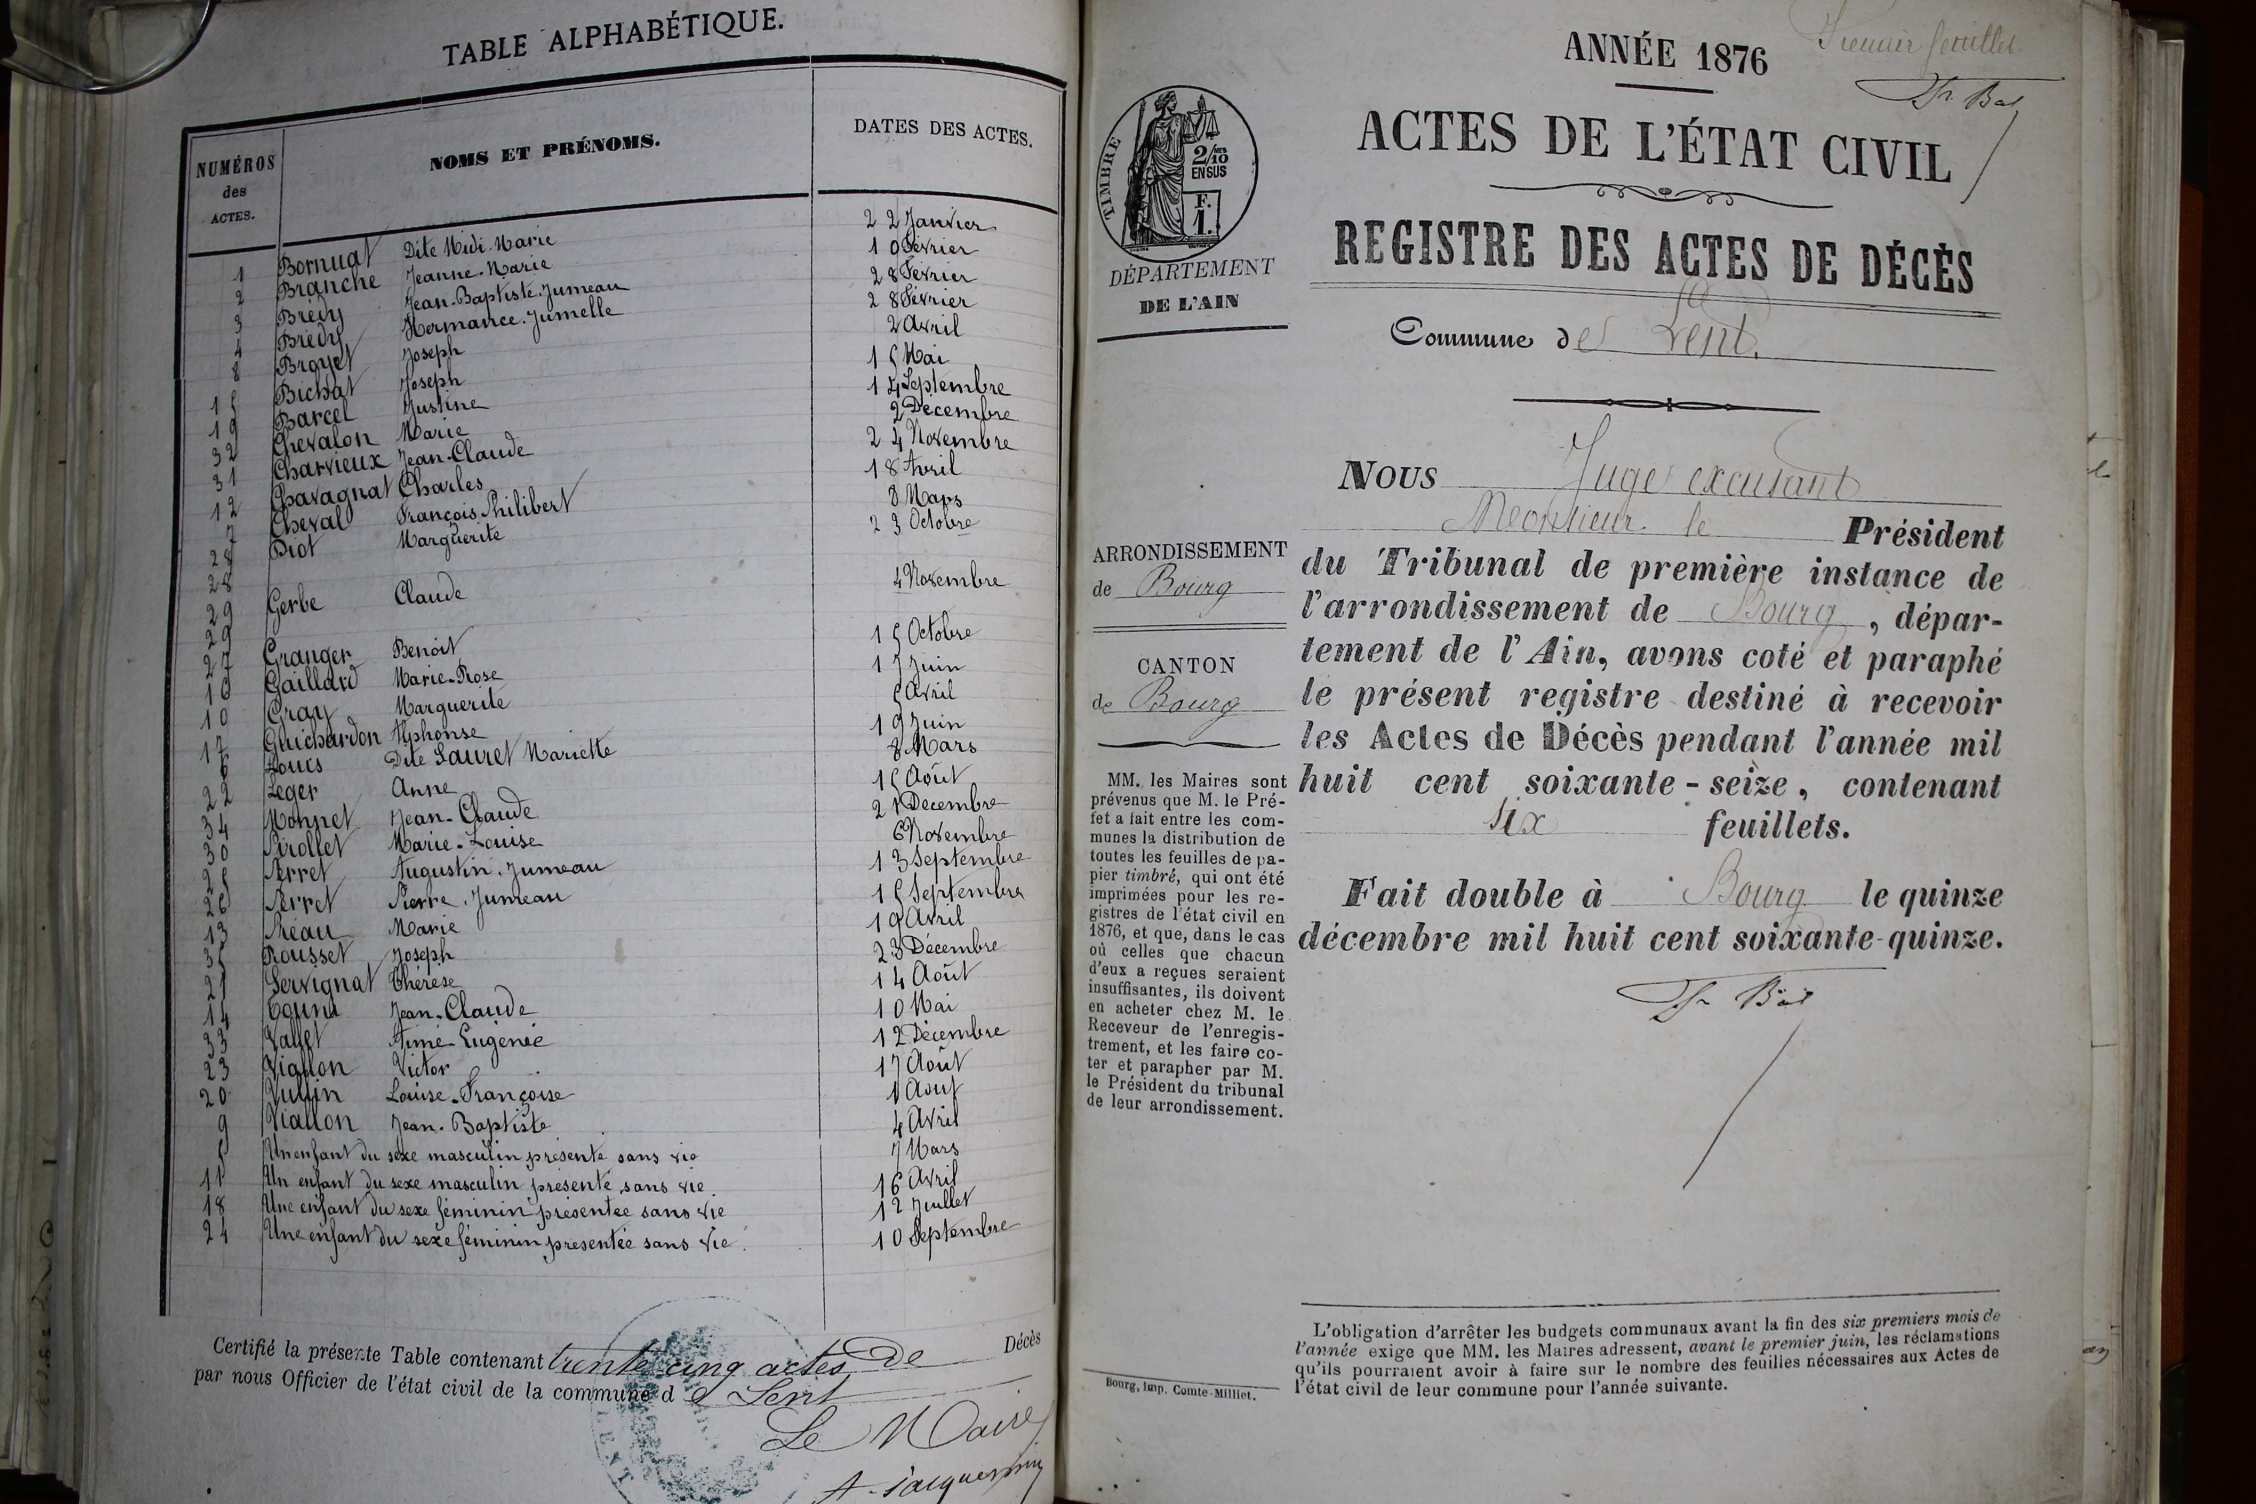 TABLE ALPHABÉTIQUE.
NUMÉROS des ACTES. NOMS ET PRÉNOMS. DATES DES ACTES.
1 Bornuat Dite Midi Marie 22 Janvier
2 Branche Jeanne-Marie 10 Février
3 Brédy Jean-Baptiste. Jumeau 28 Février
4 Brédy Hermance. Jumelle 28 Février
8 Broyet Joseph 2 Avril
15 Bichat Joseph 15 Mai
19 Barcel Justine 14 Septembre
32 Chevalon Marie 2 Décembre
31 Charvieux Jean-Claude 24 Novembre
12 Chavagnat Charles 18 Avril
7 Cheval François Philibert 8 Mars
28 Diot Marguerite 23 Octobre
28
29 Gerbe Claude 4 Novembre
29
27 Granger Benoit 15 Octobre
16 Gaillard Marie-Rose 17 Juin
10 Gray Marguerite 5 Avril
17 Guichardon Alphonse 19 Juin
6 Louis Dite Lauret Mariette 8 Mars
22 Leger Anne 15 Août
34 Monnet Jean-Claude 21 Décembre
30 Pirollet Marie-Louise 6 Novembre
25 Perret Augustin. Jumeau 13 Septembre
26 Perret Pierre. Jumeau 15 Septembre
13 Préau Marie 19 Avril
35 Rousset Joseph 23 Décembre
21 Servignat Thérèse 14 Août
14 Jean-Claude 10 Mai
33 Vallet Aimé-Eugénie 12 Décembre
23 Viallon Victor 17 Août
20 Vullin Louise-Françoise 1 Aout
9 Viallon Jean-Baptiste 4 Avril
5 Un enfant du sexe masculin présenté sans vie 7 Mars
11 Un enfant du sexe masculin présenté sans vie. 16 Avril
18 Une enfant du sexe féminin présentée sans vie 12 Juillet
24 Une enfant du sexe féminin présentée sans vie. 10 Septembre
Certifié la présente Table contenant trente cinq actes de Décès
par nous Officier de l'état civil de la commune de Lent
Le Maire
A. Jacquemin
Premier feuillet
ANNÉE 1876
ACTES DE L'ÉTAT CIVIL
REGISTRE DES ACTES DE DÉCÈS
TIMBRE
2/10 MES
EN SUS
F.
1.
DÉPARTEMENT
DE L'AIN
Commune de Lent.
NOUS Juge excusant
Monsieur le Président
du Tribunal de première instance de
l'arrondissement de Bourg, dépar-
tement de l'Ain, avons coté et paraphé
le présent registre destiné à recevoir
les Actes de Décès pendant l'année mil
huit cent soixante-seize, contenant
six feuillets.
Fait double à Bourg le quinze
décembre mil huit cent soixante-quinze.
ARRONDISSEMENT
de Bourg
CANTON
de Bourg
MM. les Maires sont
prévenus que M. le Pré-
fet a fait entre les com-
munes la distribution de
toutes les feuilles de pa-
pier timbré, qui ont été
imprimées pour les re-
gistres de l'état civil en
1876, et que, dans le cas
où celles que chacun
d'eux a reçues seraient
insuffisantes, ils doivent
en acheter chez M. le
Receveur de l'enregis-
trement, et les faire co-
ter et parapher par M.
le Président du tribunal
de leur arrondissement.
L'obligation d'arrêter les budgets communaux avant la fin des six premiers mois de
l'année exige que MM. les Maires adressent, avant le premier juin, les réclamations
qu'ils pourraient avoir à faire sur le nombre des feuilles nécessaires aux Actes de
l'état civil de leur commune pour l'année suivante.
Bourg, Imp. Comte-Milliet.